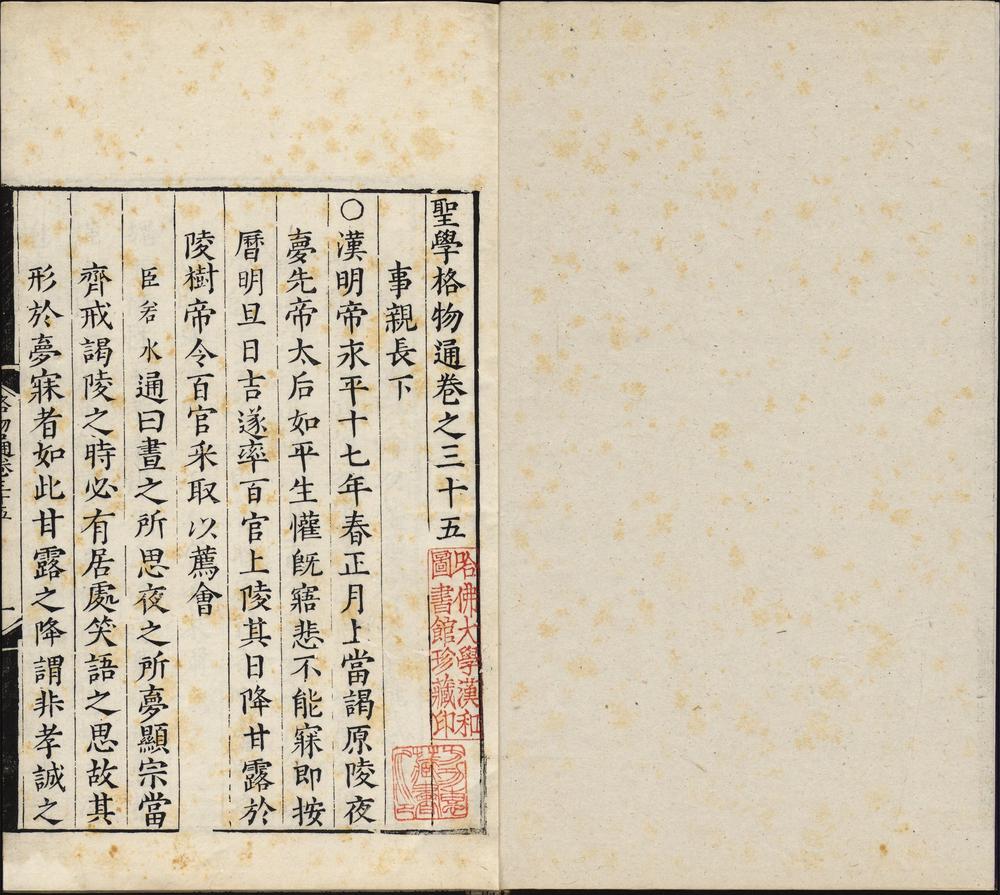 聖學格物通卷之三十五
事親長下
○漢明帝永平十七年春正月上當謁原陵夜
夢先帝太后如平生懽旣寤悲不能寐卽按
曆明旦日吉遂率百官上陵其日降甘露於
陵樹帝令百官采取以薦會
臣若水通曰晝之所思夜之所夢顯宗當
齊戒謁陵之時必有居處笑語之思故其
形於夢寐者如此甘露之降謂非孝誠之
哈佛大學漢和
圖書館珍藏印
格物通卷三十五
一